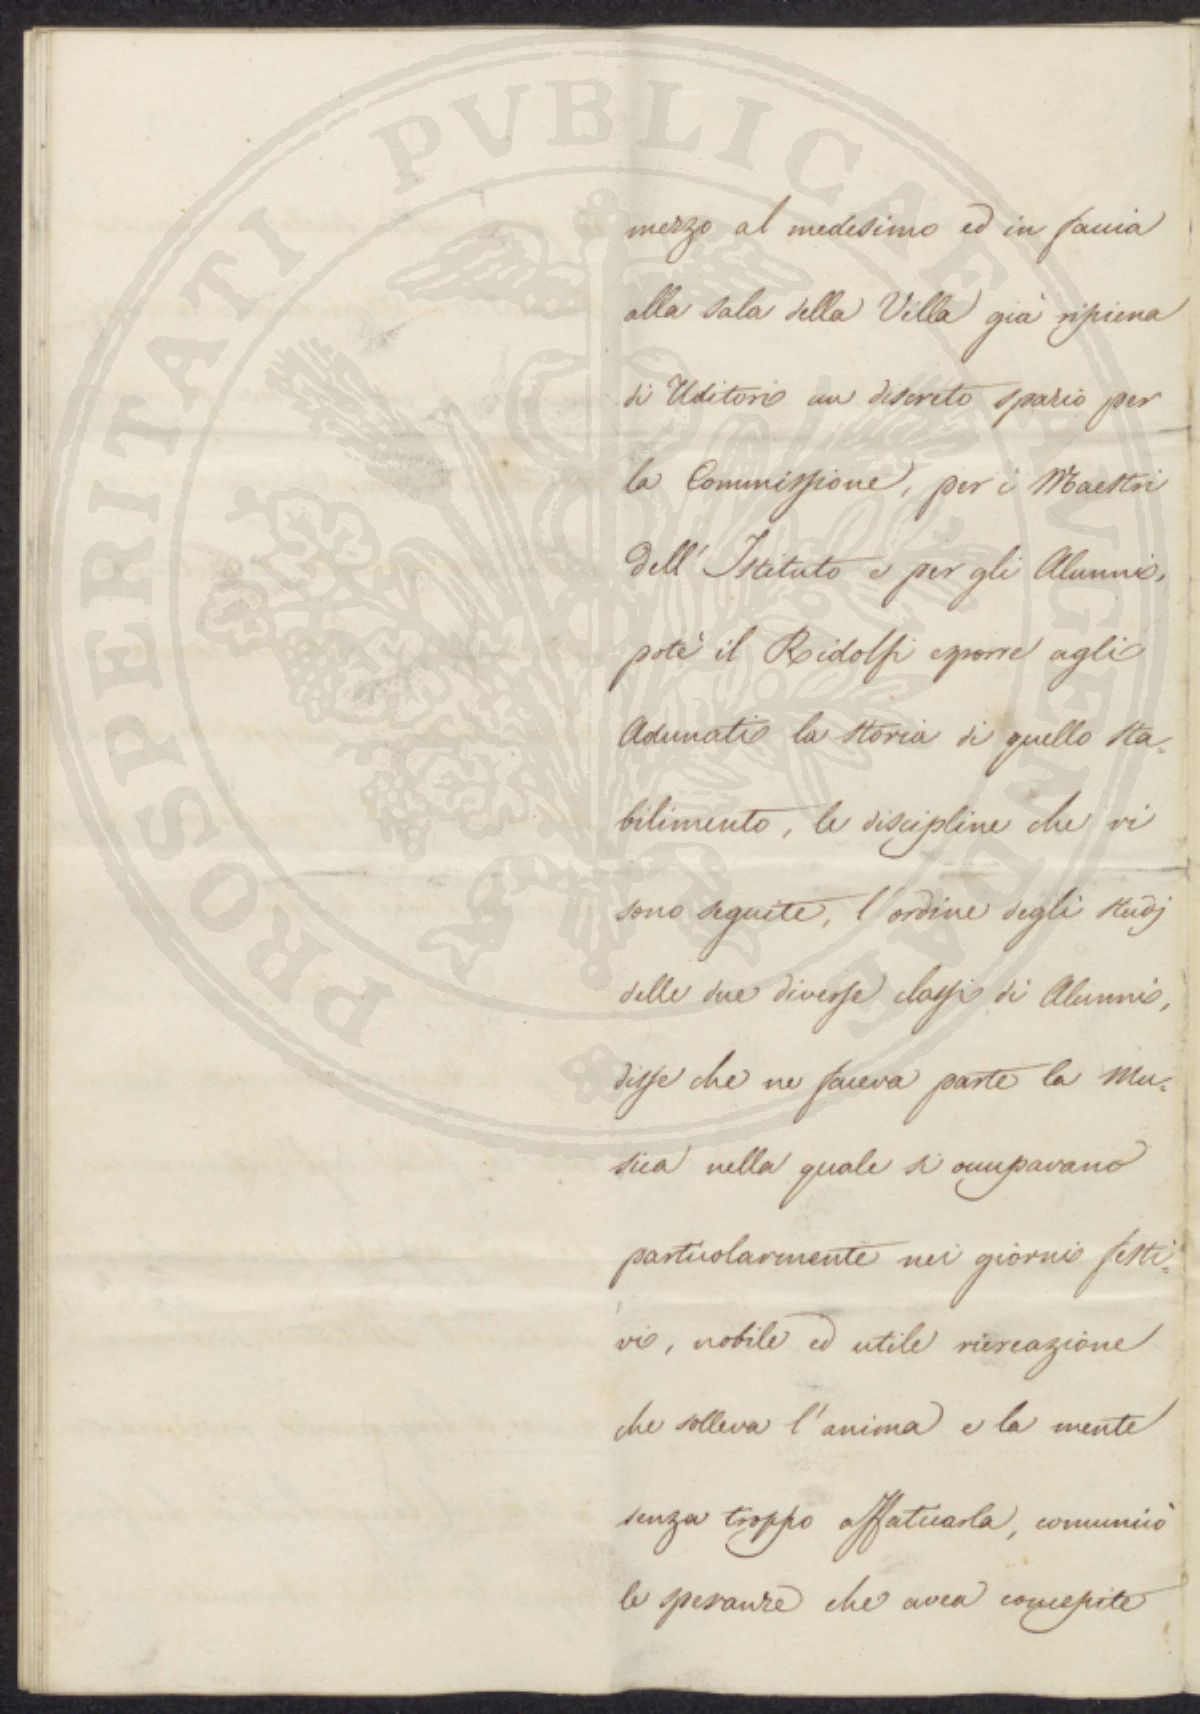 mezzo al medesimo ed in faccia
alla sala della Villa già ripiena
di Uditori un discreto spazio per
la Commissione, per i Maestri
dell' Istituto e per gli Alunni,
potè il Ridolfi esporre agli
Adunati la storia di quello sta=
bilimento, le discipline che vi
sono seguite, l'ordine degli studj
delle due diverse classi di Alunni,
disse che ne faceva parte la Mu=
sica nella quale si occupavano
particolarmente nei giorni festi=
vi, nobile ed utile ricreazione
che solleva l'anima e la mente
senza troppo affaticarla, comunicò
le speranze che avea concepite
PROSPERITATI PVBLICAE AVGENDAE